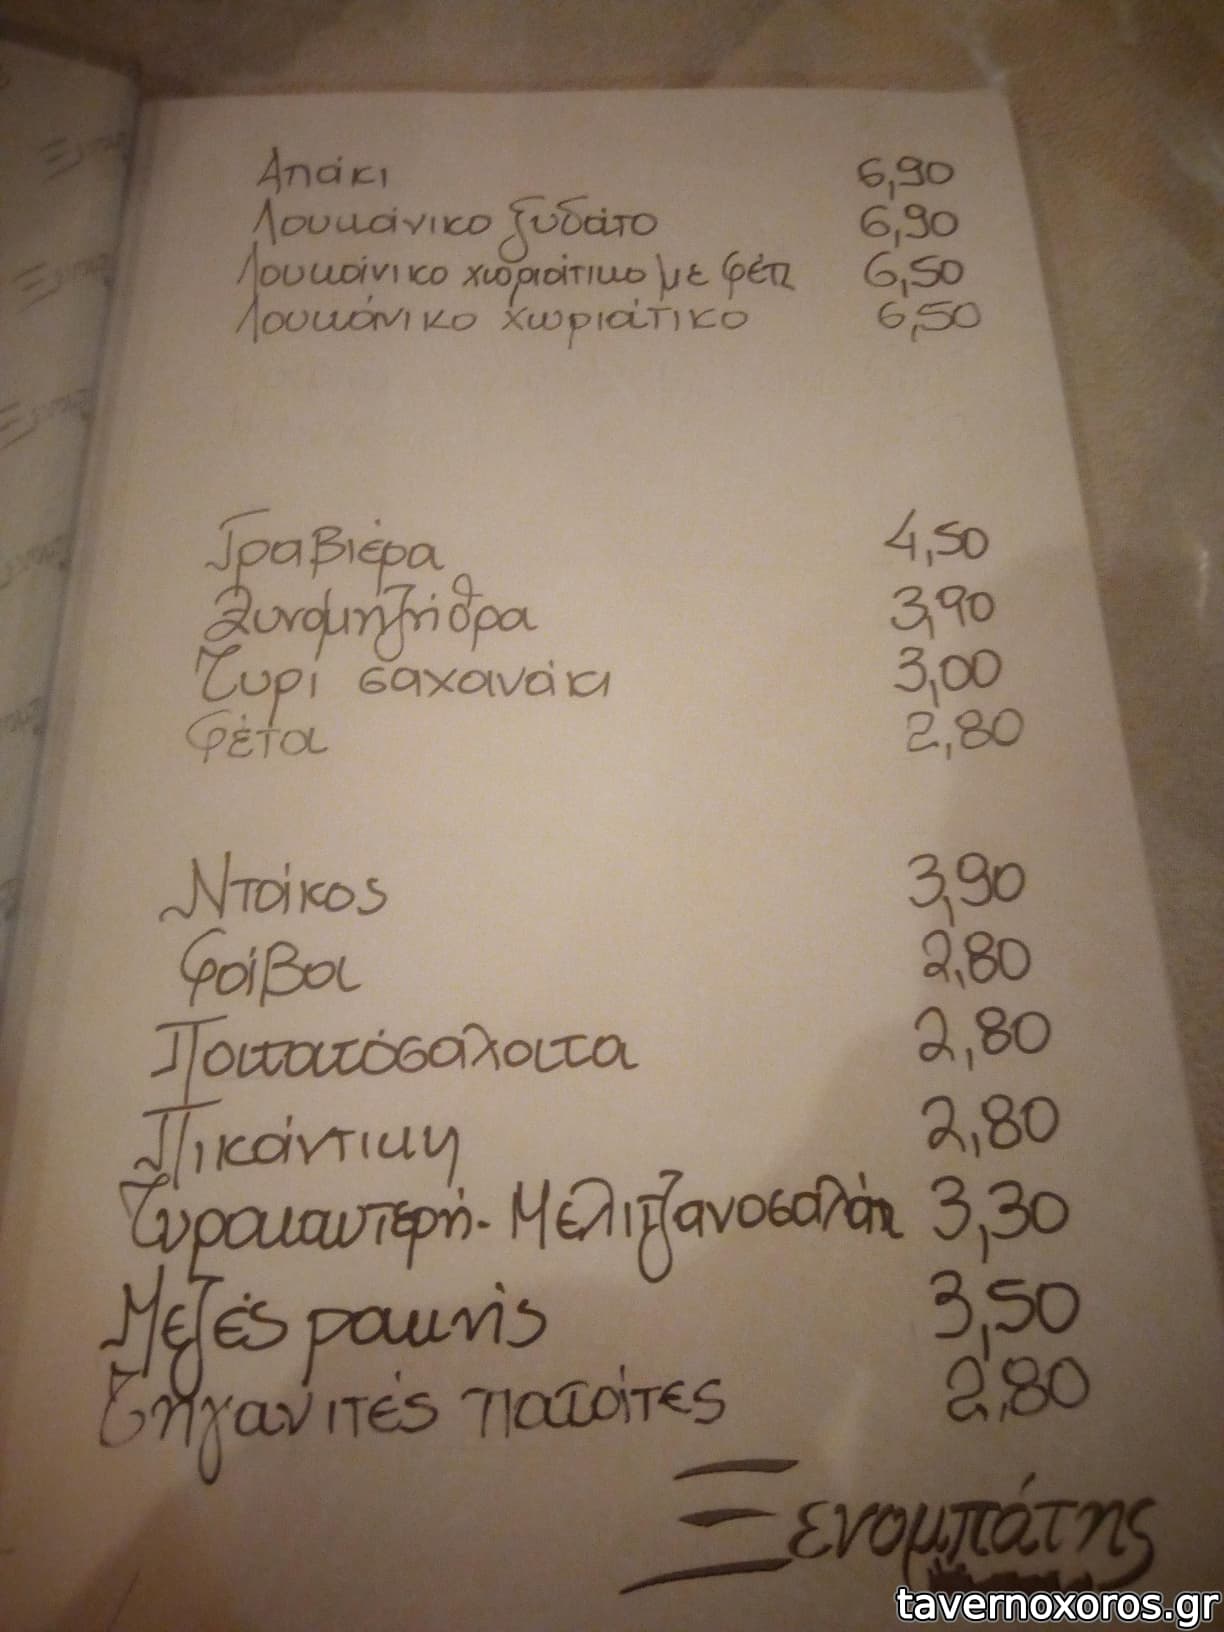 Απάκι 6,90
Λουκάνικο ξυδάτο 6,90
Λουκάνικο χωριάτικο με φέτα 6,50
Λουκάνικο χωριάτικο 6,50
Γραβιέρα 4,50
Ξυνομηζήθρα 3,90
Τυρί σαχανάκι 3,00
Φέτα 2,80
Ντάκος 3,90
Φάβα 2,80
Πατατόσαλατα 2,80
Πικάντικη 2,80
Τυροκαυτερή - Μελιτζανοσαλάτα 3,30
Μεζές ρακής 3,50
Τηγανιτές πατάτες 2,80
Ξενομπάτης
tavernoxoros.gr